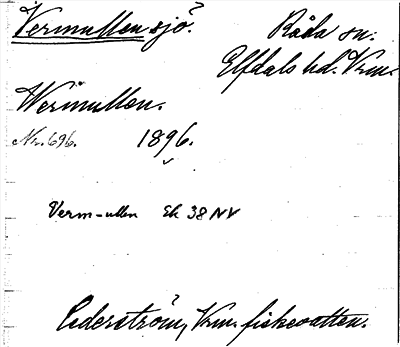 Vermullen sjö. Råda sn.
Elfdals hd. Vrm.
Wermullen.
Nr. 696. 1896.
Verm-ullen Ek 38 NV
Cederström, Vrm. fiskevatten.